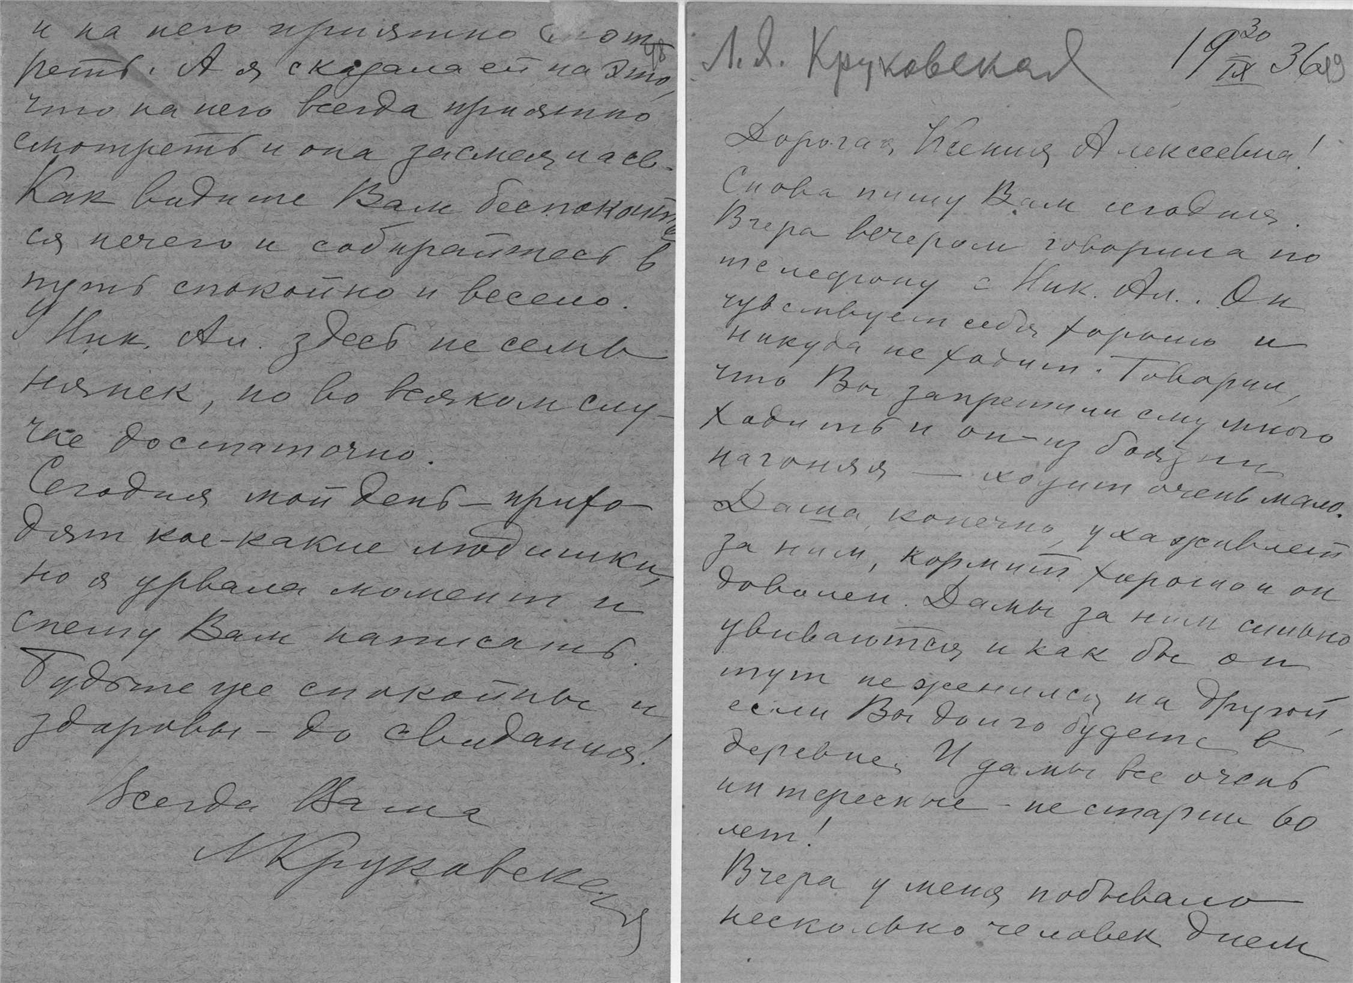 и на него приятно смот
реть. А я сказала ей на это,
что на него всегда приятно
смотреть и она засмеялась.
Как видите Вам беспокоить
ся нечего и собирайтесь в
путь спокойно и весело.
У Ник. Ал. здесь не семь
нянек, но во всяком слу-
чае достаточно.
Сегодня мой день – прихо
дят кое-какие людишки,
но я урвала момент и
спешу Вам написать.
Будьте уже спокойны и
здоровы – до свидания!
Всегда Ваша
ЛКруковская
48
Л.Я. Круковская
19 30/IX 36
49
Дорогая Ксения Алексеевна!
Снова пишу Вам сегодня.
Вчера вечером говорила по
телефону с Ник. Ал.. Он
чувствует себя хорошо и
никуда не ходит. Говорил,
что Вы запретили ему много
ходить и он – из боязни
нагоняя – ходит очень мало.
Даша, конечно, ухаживает
за ним, кормит хорошо и он
доволен. Дамы за ним сильно
увиваются и как бы он
тут не женился на другой,
если Вы долго будете в
деревне. И дамы все очень
интересные – не старше 60
лет!
Вчера у меня побывало
несколько человек днем